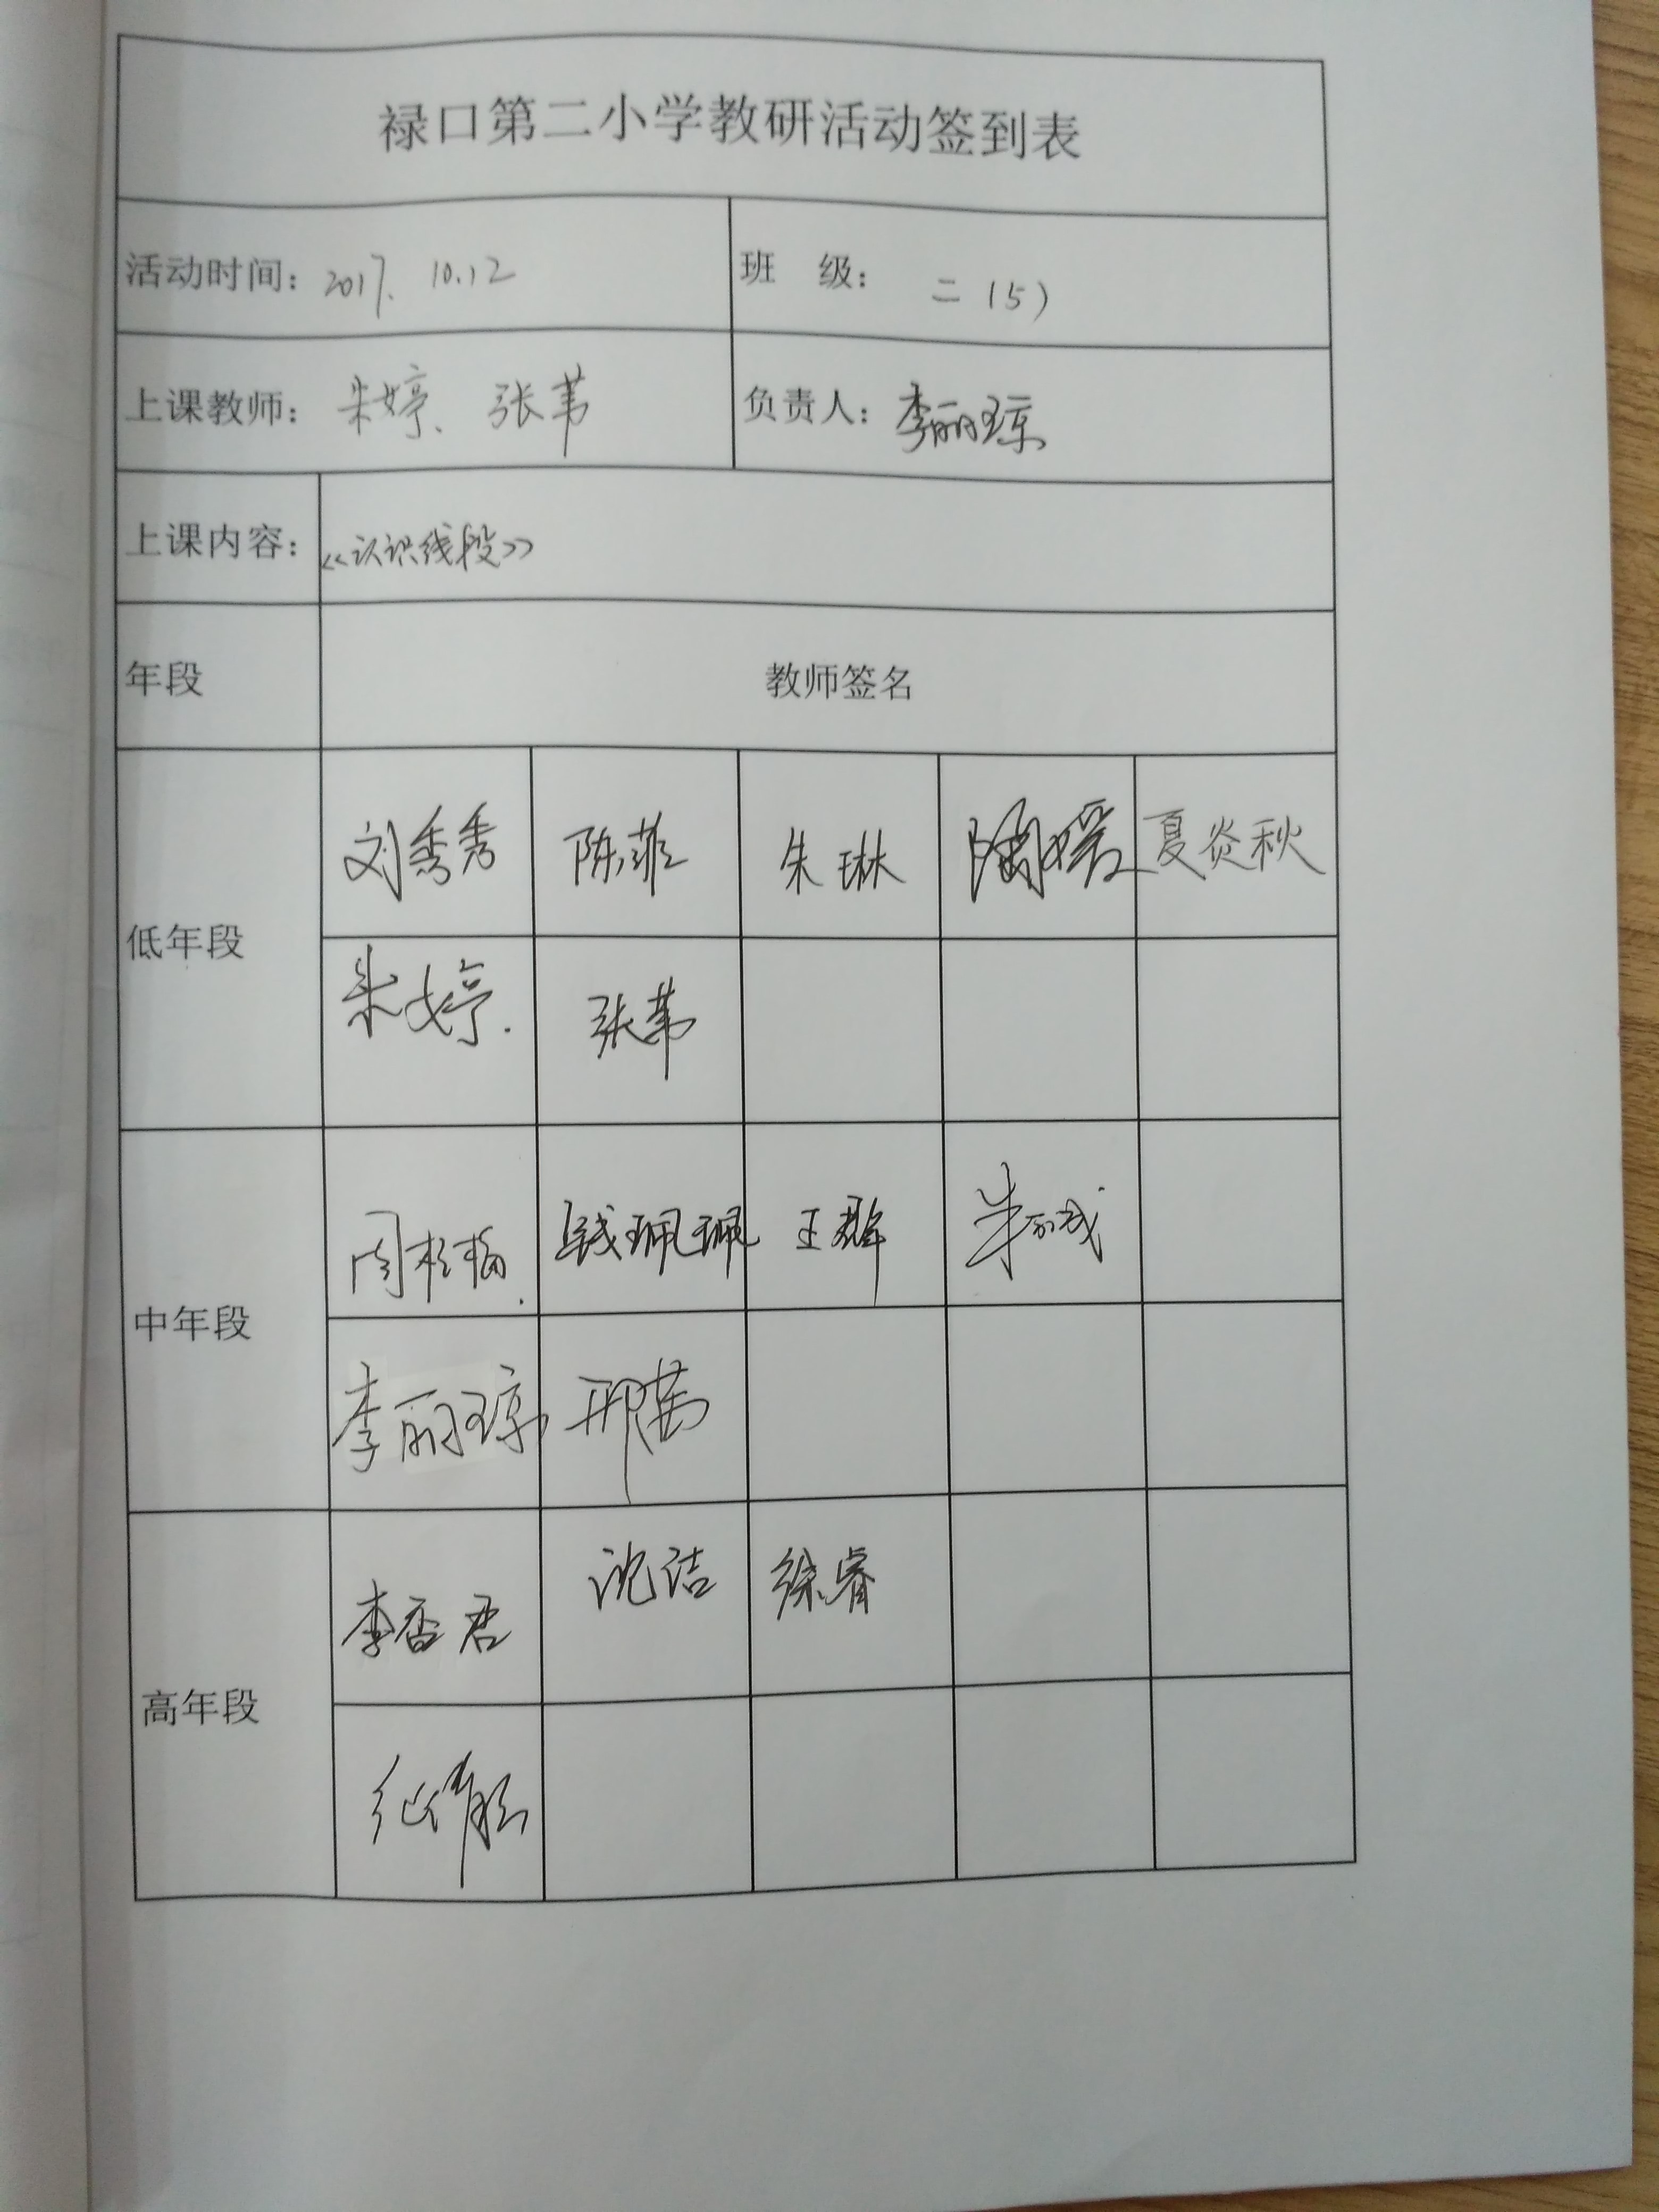 禄口第二小学教研活动签到表
活动时间：2017. 10.12 班 级： 二（5）
上课教师：朱婷、张苇 负责人：李丽琼
上课内容：《认识线段》
年段 教师签名
刘秀秀 陈菲 朱琳 陶媛 夏炎秋
低年段
朱婷. 张苇
周桂梅. 钱珮珮 王群
中年段
李丽琼 邢茜
李香君 沈洁 徐睿
高年段